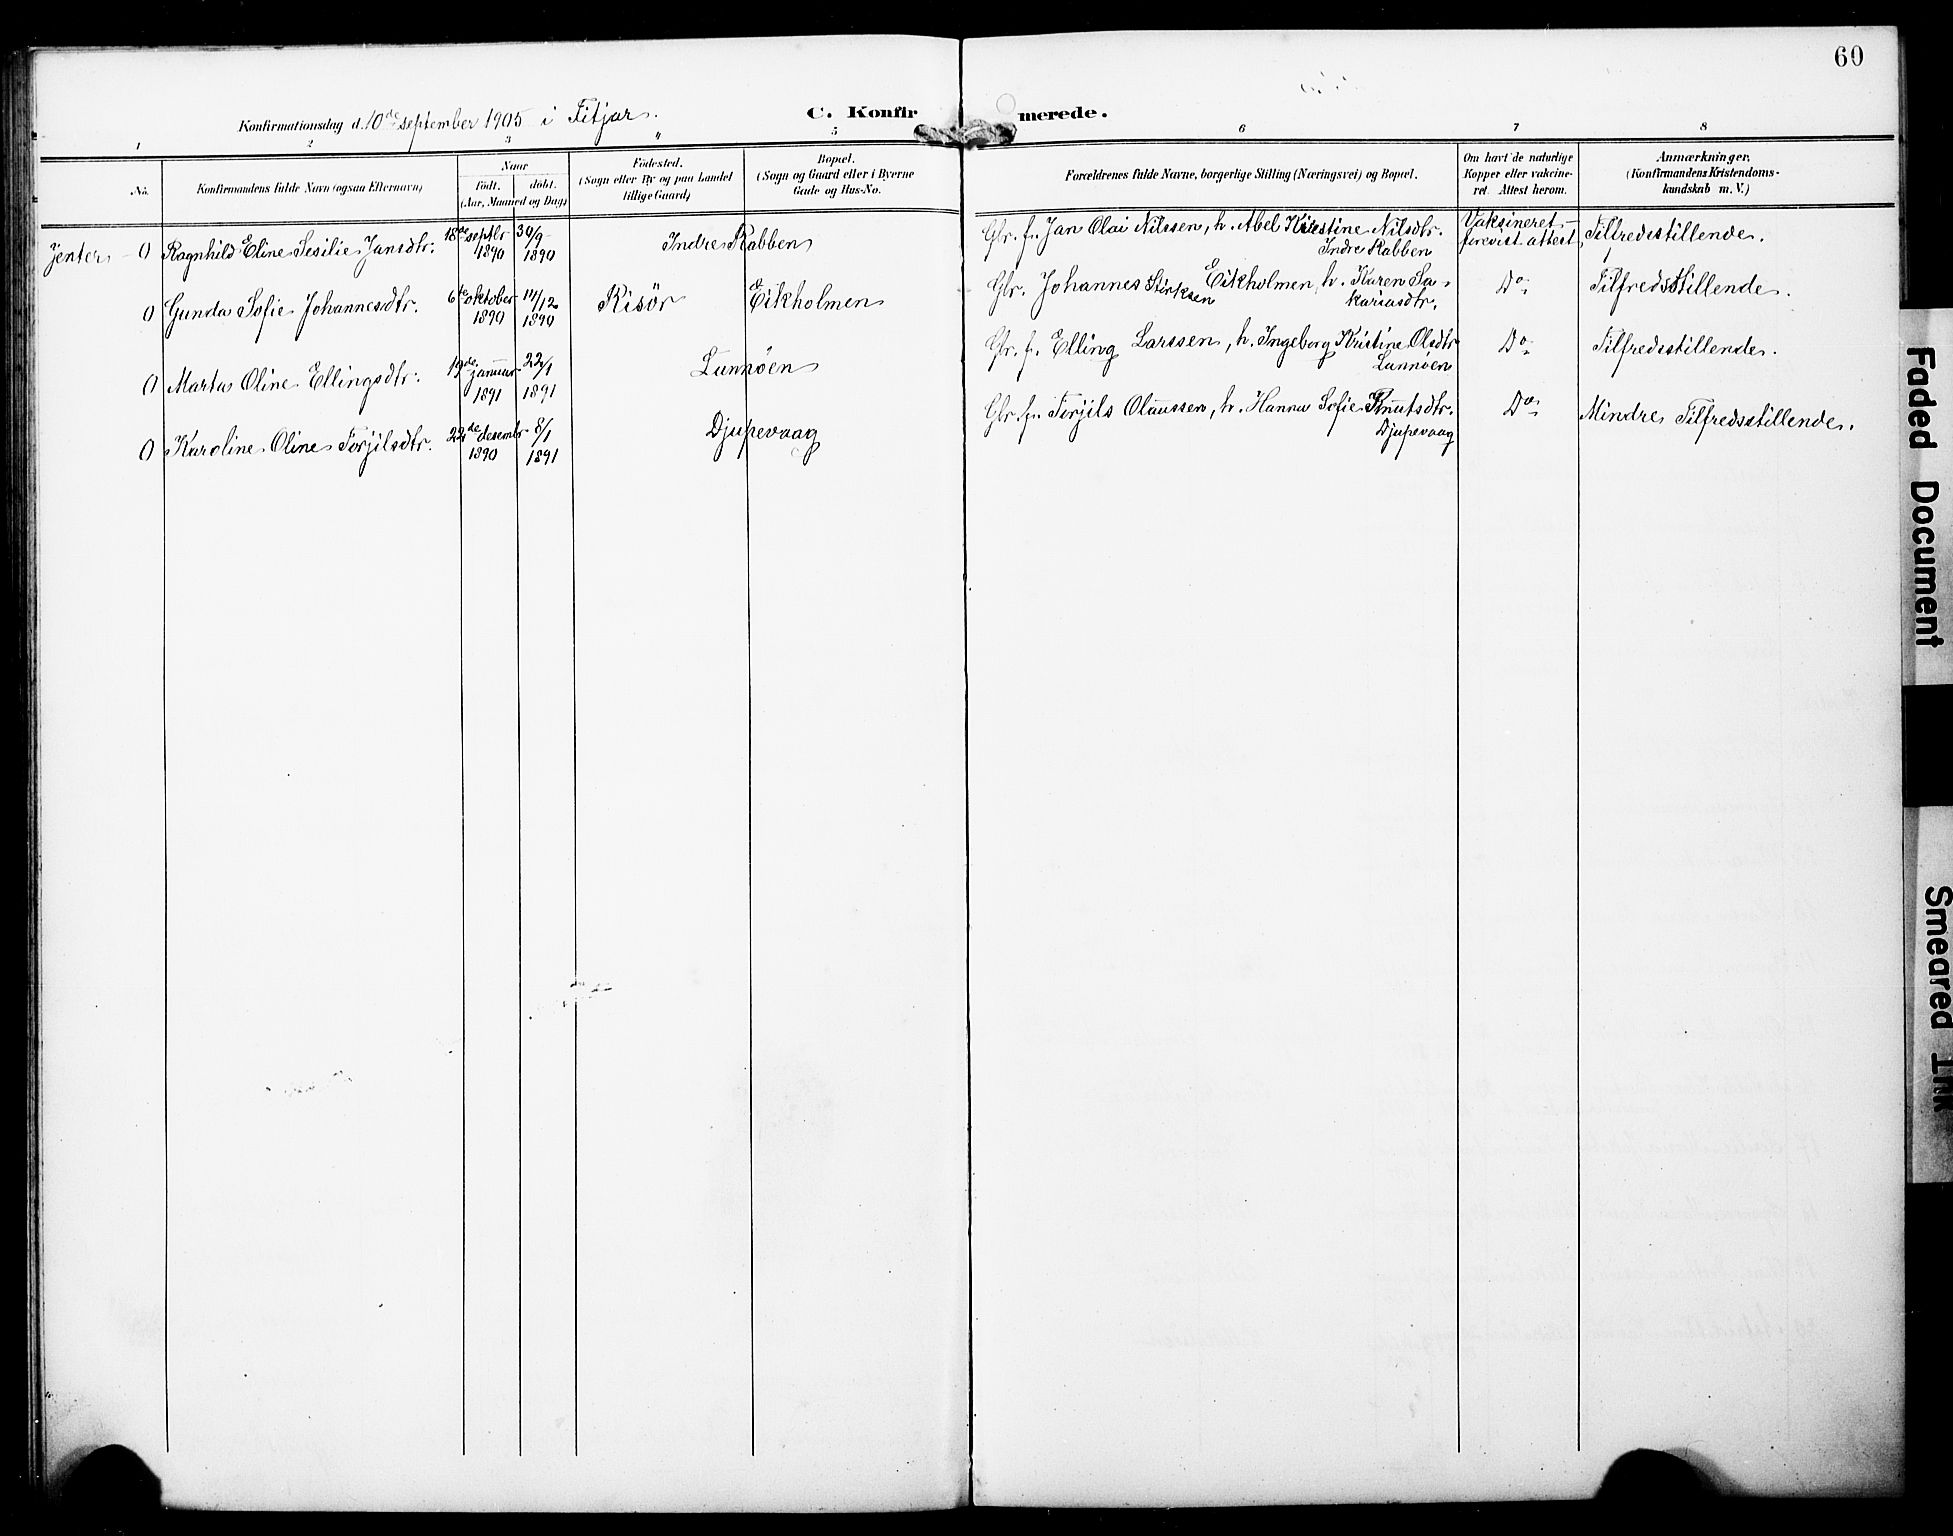 60
Konfirmationsdag d. 10de september 1905 i Fitjar.
C. Konfirmerede.
1 2 3 4 5 6 7 8
No.
Konfirmandens fulde Navn (ogsaa Efternavn)
Naar
født. døbt.
(Aar, Maaned og Dag)
Fødested.
(Sogn eller By og paa Landet
tillige Gaard)
Bopæl.
(Sogn og Gaard eller i Byerne
Gade og Hus-No.
Forældrenes fulde Navne, borgerlige Stilling (Næringsvei) og Bopæl.
Om havt de naturlige
Kopper eller vakcine-
ret. Attest herom.
Anmærkninger,
(Konfirmandens Kristendoms-
kundskab m. V.)
Jenter 0 Ragnhild Eline Sesilie Jansdtr. 18de septbr 1890 30/9 1890 Indre Rabben Gbr. f. Jan Olai Nilssen, h. Abel Kristine Nilsdtr. Indre Rabben Vaksineret forevist attest Tilfredsstillende.
0 Gunda Sofie Johannesdtr. 6te oktober 1890 14/12 1890 Risør Eikholmen Gbr. Johannes Eikholmen, h. Karen Sakariasdtr. Do Tilfredsstillende.
0 Marta Oline Ellingsdtr. 19de januar 1891 22/1 1891 Lunnöen Gbr. f. Elling Larssen, h. Ingeborg Kristine Olsdtr Lunnöen Do Tilfredsstillende.
0 Karoline Oline Torjilsdtr. 22de desembr 1890 8/1 1891 Djupevaag Gbr. fr. Torjils Olaussen, h. Hanna Sofie Knutsdtr. Djupevaag Do Mindre Tilfredsstillende.
Faded Document
Smeared Ink